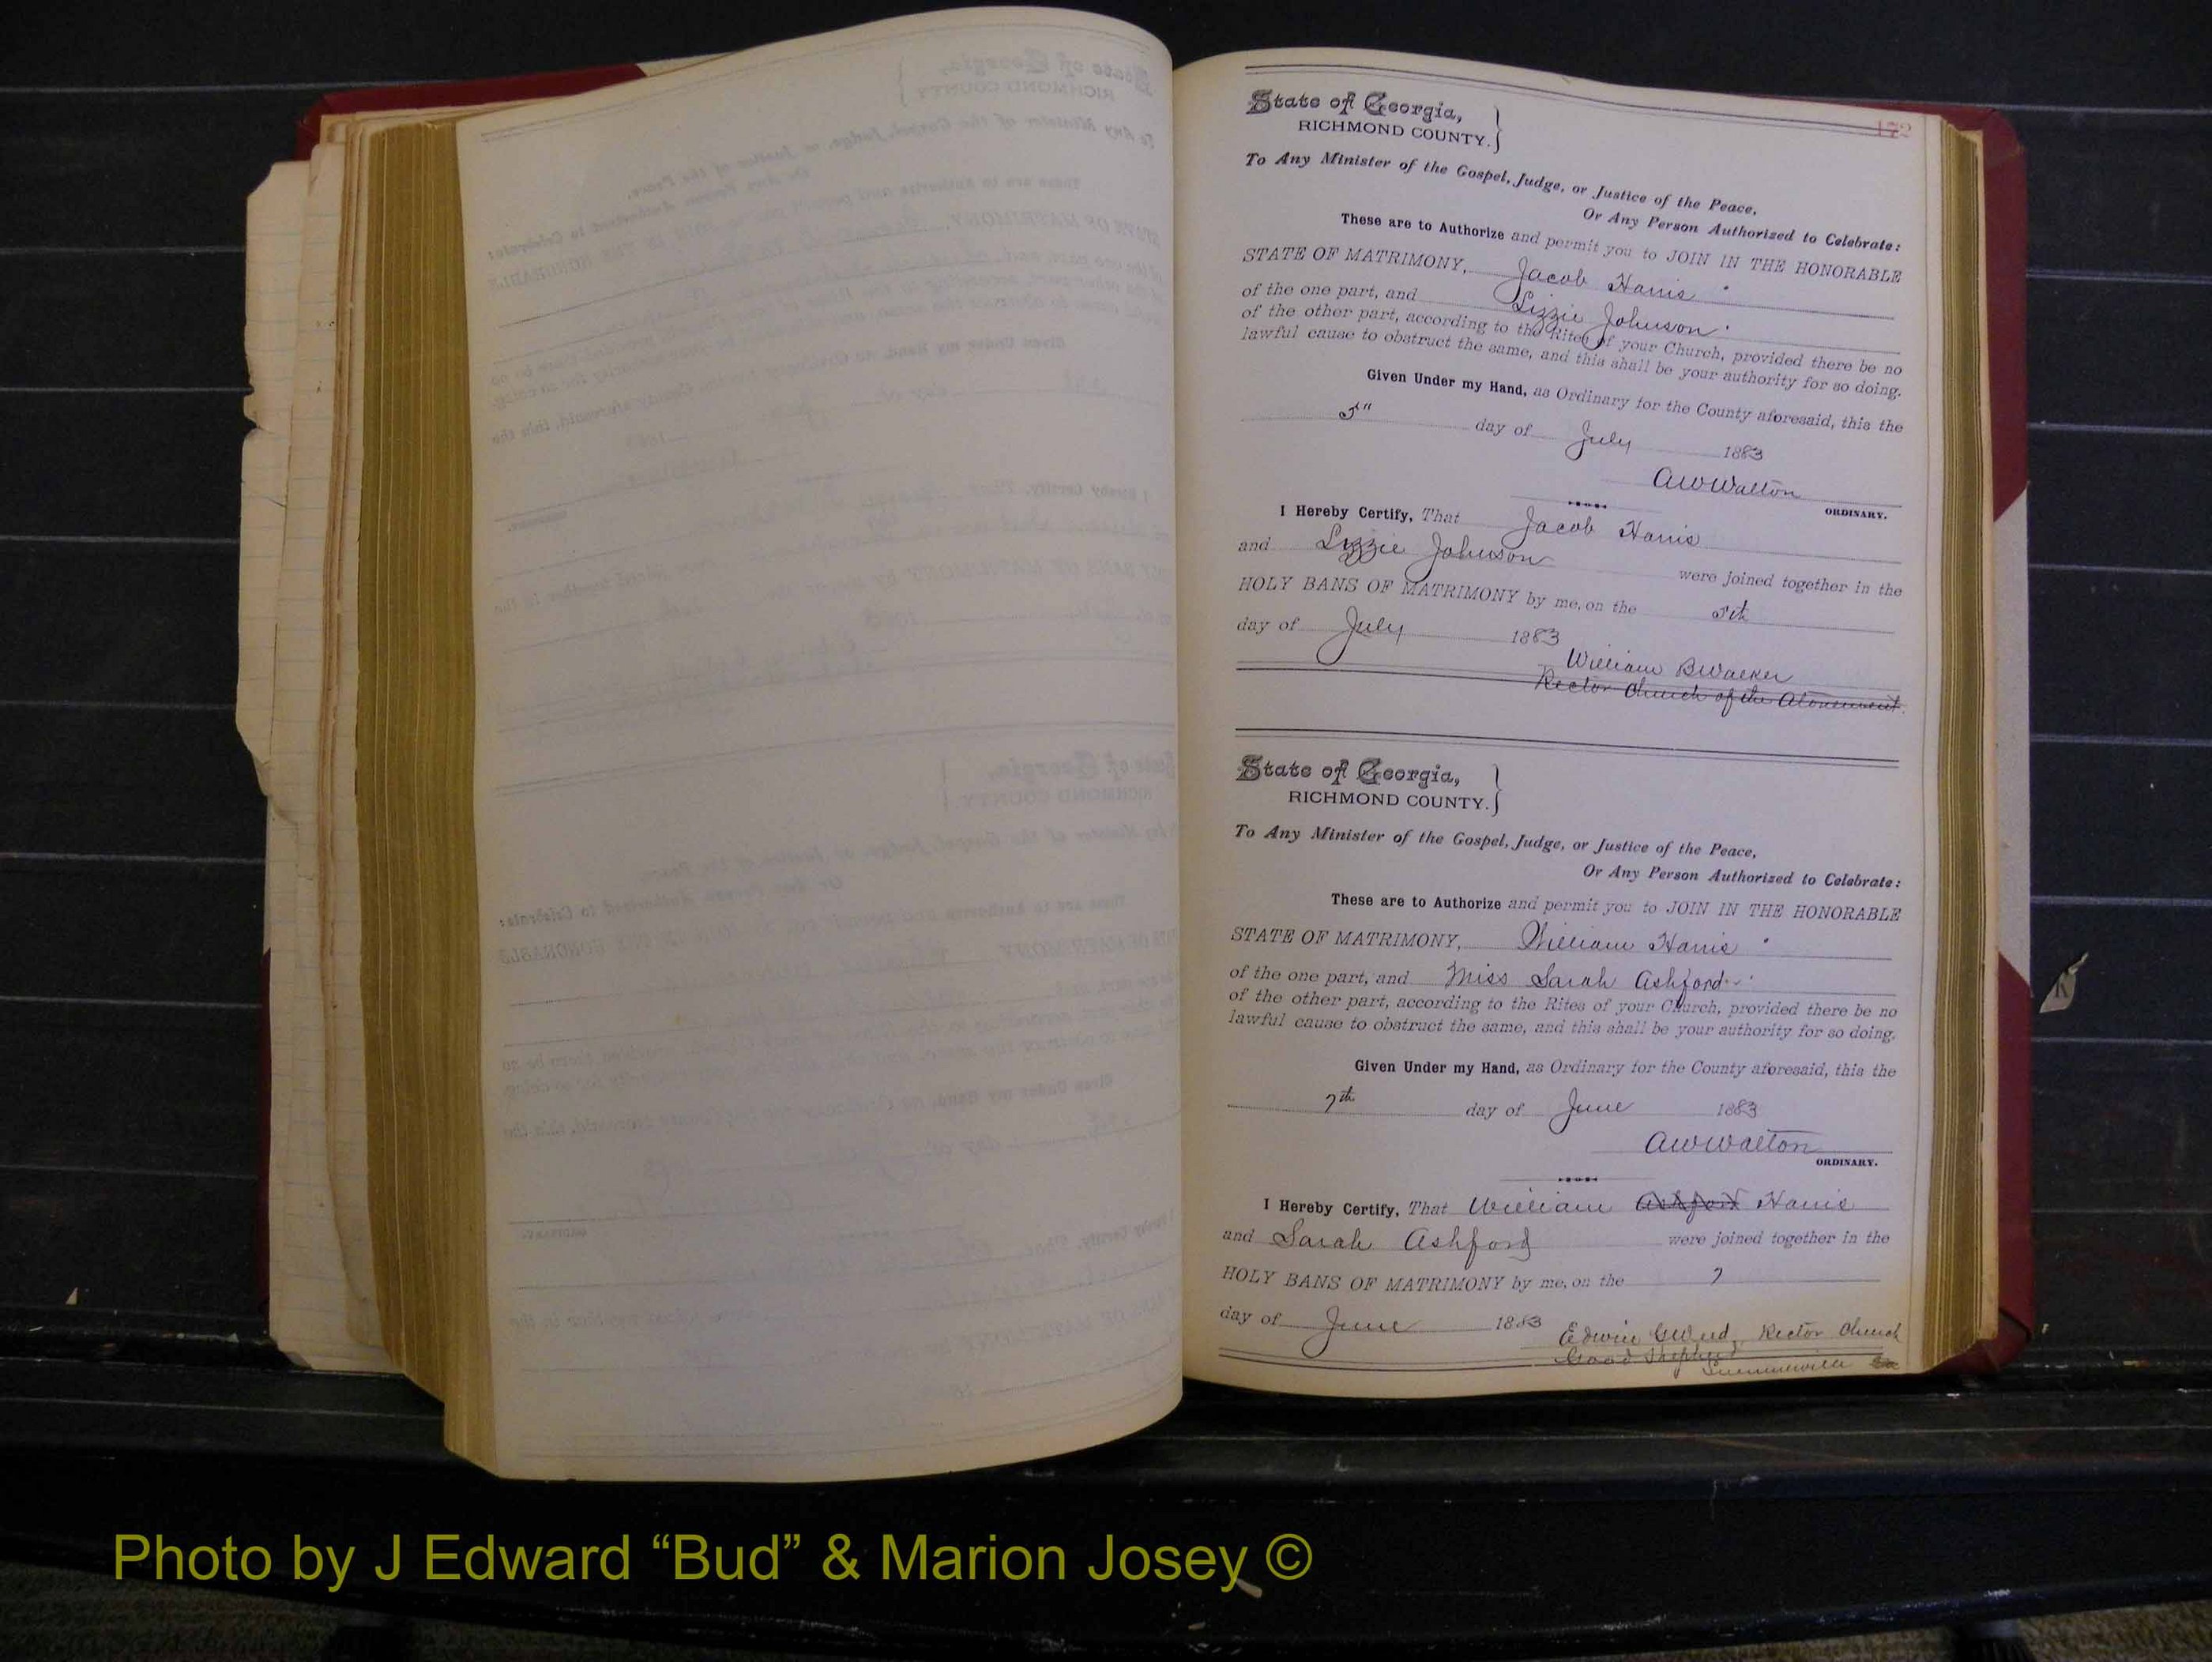 172
State of Georgia,
RICHMOND COUNTY.
To Any Minister of the Gospel, Judge, or Justice of the Peace,
Or Any Person Authorized to Celebrate:
These are to Authorize and permit you to JOIN IN THE HONORABLE
STATE OF MATRIMONY, Jacob Harris
of the one part, and Lizzie Johnson
of the other part, according to the Rites of your Church, provided there be no
lawful cause to obstruct the same, and this shall be your authority for so doing.
Given Under my Hand, as Ordinary for the County aforesaid, this the
5" day of July 1883
AW Walton
ORDINARY.
I Hereby Certify, That Jacob Harris
and Lizzie Johnson were joined together in the
HOLY BANS OF MATRIMONY by me, on the 5th
day of July 1883
William B Walker
Rector Church of the Atonement.
State of Georgia,
RICHMOND COUNTY.
To Any Minister of the Gospel, Judge, or Justice of the Peace,
Or Any Person Authorized to Celebrate:
These are to Authorize and permit you to JOIN IN THE HONORABLE
STATE OF MATRIMONY, William Harris
of the one part, and Miss Sarah Ashford
of the other part, according to the Rites of your Church, provided there be no
lawful cause to obstruct the same, and this shall be your authority for so doing.
Given Under my Hand, as Ordinary for the County aforesaid, this the
7th day of June 1883
AW Walton
ORDINARY.
I Hereby Certify, That William Ashford Harris
and Sarah Ashford were joined together in the
HOLY BANS OF MATRIMONY by me, on the 7
day of June 1883
Edwin G Weed, Rector Church
Good Shepherd
Summerville Ga
Photo by J Edward “Bud” & Marion Josey ©